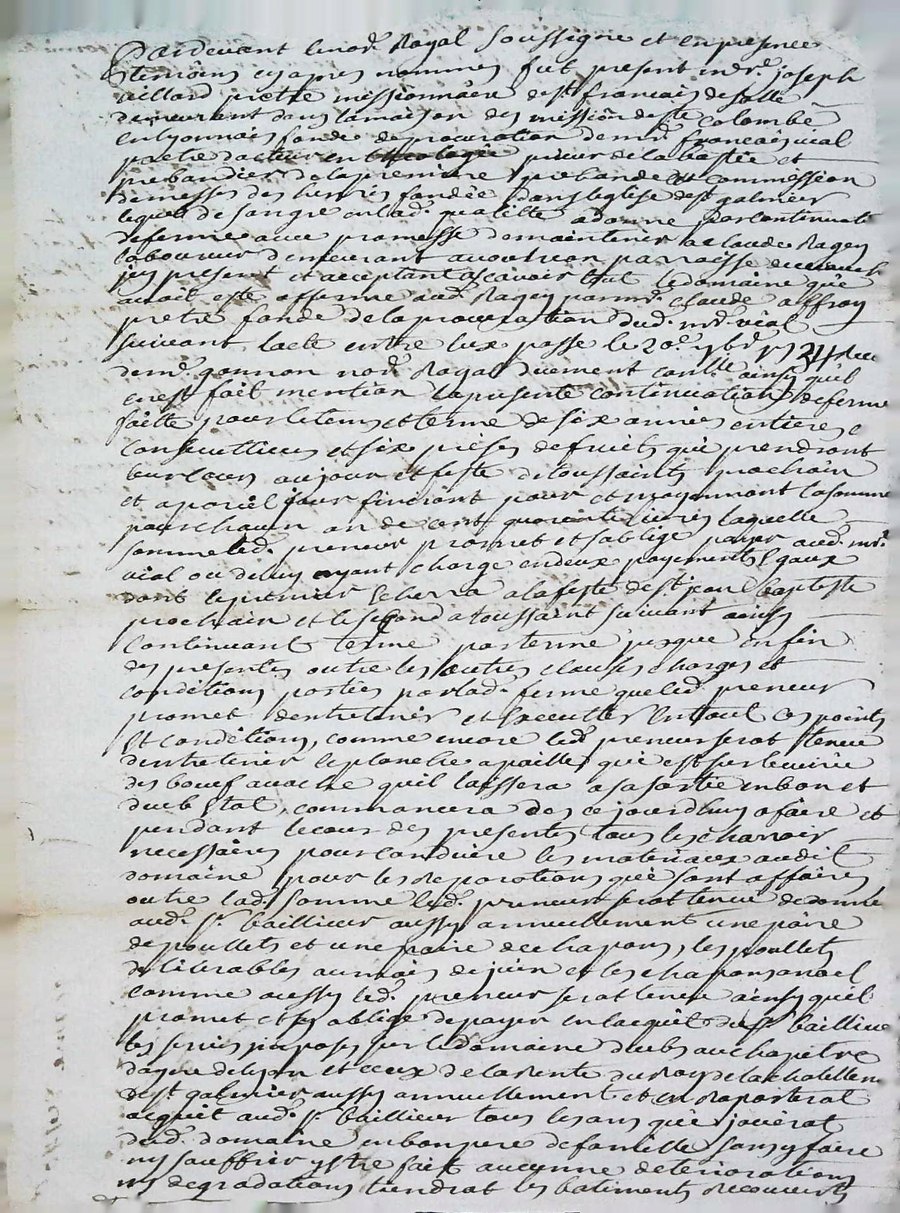 Pardevant le nore Royal Soussigne et en presence
temoins cy apres nommes fut present mre. joseph
aillard pretre missionnaire de st francois de salle
demeurant dans la maison des mission de ste colombe
en lyonnais fondé de procuration de mre francois vial
pretre docteur en theologie prieur de la bastie et
prebandier de la premiere prebande et commission
de messes des henris fondée dans leglise de st galmier
lequel de son gre en lad. qualitte a donné par continuati
de ferme avec promesse de maintenir a claude Ragey
laboureur demeurant a parroisse de
jcy present et acceptant ascavoir tout le domaine que
avoit este affermé aud. Ragey par mre. claude
pretre fondé de la procuration dud. mre vial
suivant lacte entre eux passé le 20e. 1724 recu
de me. gonnon nore Royal duement controllé ainsy quil
en est fait mention la presente continuation de ferme
faitte pour le tems et terme de six annéés entieres et
consecutives et six prises de fruits que prendront
leur cours au jour et feste de toussaints prochain
et a pareil jour finiront pour et moyennant la somme
pour chacun an de cent quarante livres laquelle
somme led. preneur promet et soblige payer aud. mre
vial ou de luy ayant charge en deux payements Egaux
dont le premier Echerra a la feste de st jean baptiste
prochain et le second a toussaint suivant ainsy
continuant terme par terme jusque en fin
des presentes outre les autres clauses charges et
conditions portées par lad. ferme que led. preneur
promet dentretenir et Executter En tout ces points
Et conditions, comme encore led. preneur serat tenu
dentretenir le planché a paille que est sur lecurie
des boeuf avache quil laissera a sa sortie en bon et
dueb Etat, commancera des ce jourdhuy a faire et
pendant le cour des presentes tous les charrois
necessaires pour conduire les materiaux audit
domaine pour les reparations que sont affaire
outre lad. somme led. preneur serat tenu de donner
aud. sr. baillieur aussy annuellement une paire
de poullets et une paire de chapons, les poullets
delivrables au mois de juin et les chapons a noel
comme aussy led. preneur serat tenu ainsy quil
promet et soblige de payer en lacquit dud. sr bailleur
les servis imposes sur le domaine deubs au chapitre
de lyon et ceux de la rente du Roy de la chatellenie
de st galmier aussy annuellement et en Raporterat
acquit aud. sr. baillieur tous les ans que jouirat
dud. domaine en bon pere de famille sans y faire
ny souffrir Estre fait aucunne deterioration
ny degradations tiendrat les batiments recouverts